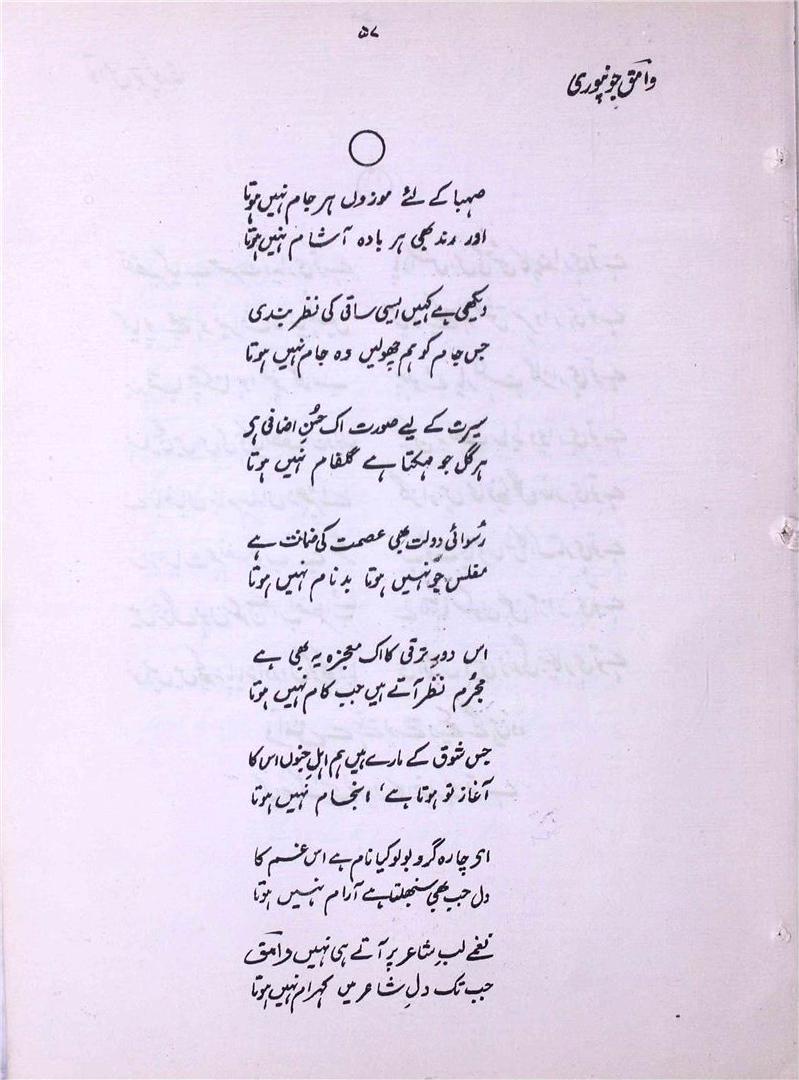 ۵۷
وامق جونپوری
صہبا کے لئے موزوں ہر جام نہیں ہوتا
اور رند بھی ہر بادہ آشام نہیں ہوتا
دیکھی ہے کہیں ایسی ساقی کی نظر بندی
جس جام کو ہم چھولیں وہ جام نہیں ہوتا
سیرت کے لیے صورت اک حُسنِ اضافی ہے
ہر گل جو مہکتا ہے گلفام نہیں ہوتا
رُسوائی دولت بھی عصمت کی ضمانت ہے
مفلس جو نہیں ہوتا بدنام نہیں ہوتا
اس دورِ ترقی کا اک معجزہ یہ بھی ہے
مجرُم نظر آتے ہیں جب کام نہیں ہوتا
جس شوق کے مارے ہیں ہم اہلِ جنوں اس کا
آغاز تو ہوتا ہے، انجام نہیں ہوتا
اے چارہ گرو بولو کیا نام ہے اس غم کا
دل جب بھی سنبھلتا ہے آرام نہیں ہوتا
نغمے لبِ شاعر پر آتے ہی نہیں وامق
جب تک دلِ شاعر میں کہرام نہیں ہوتا